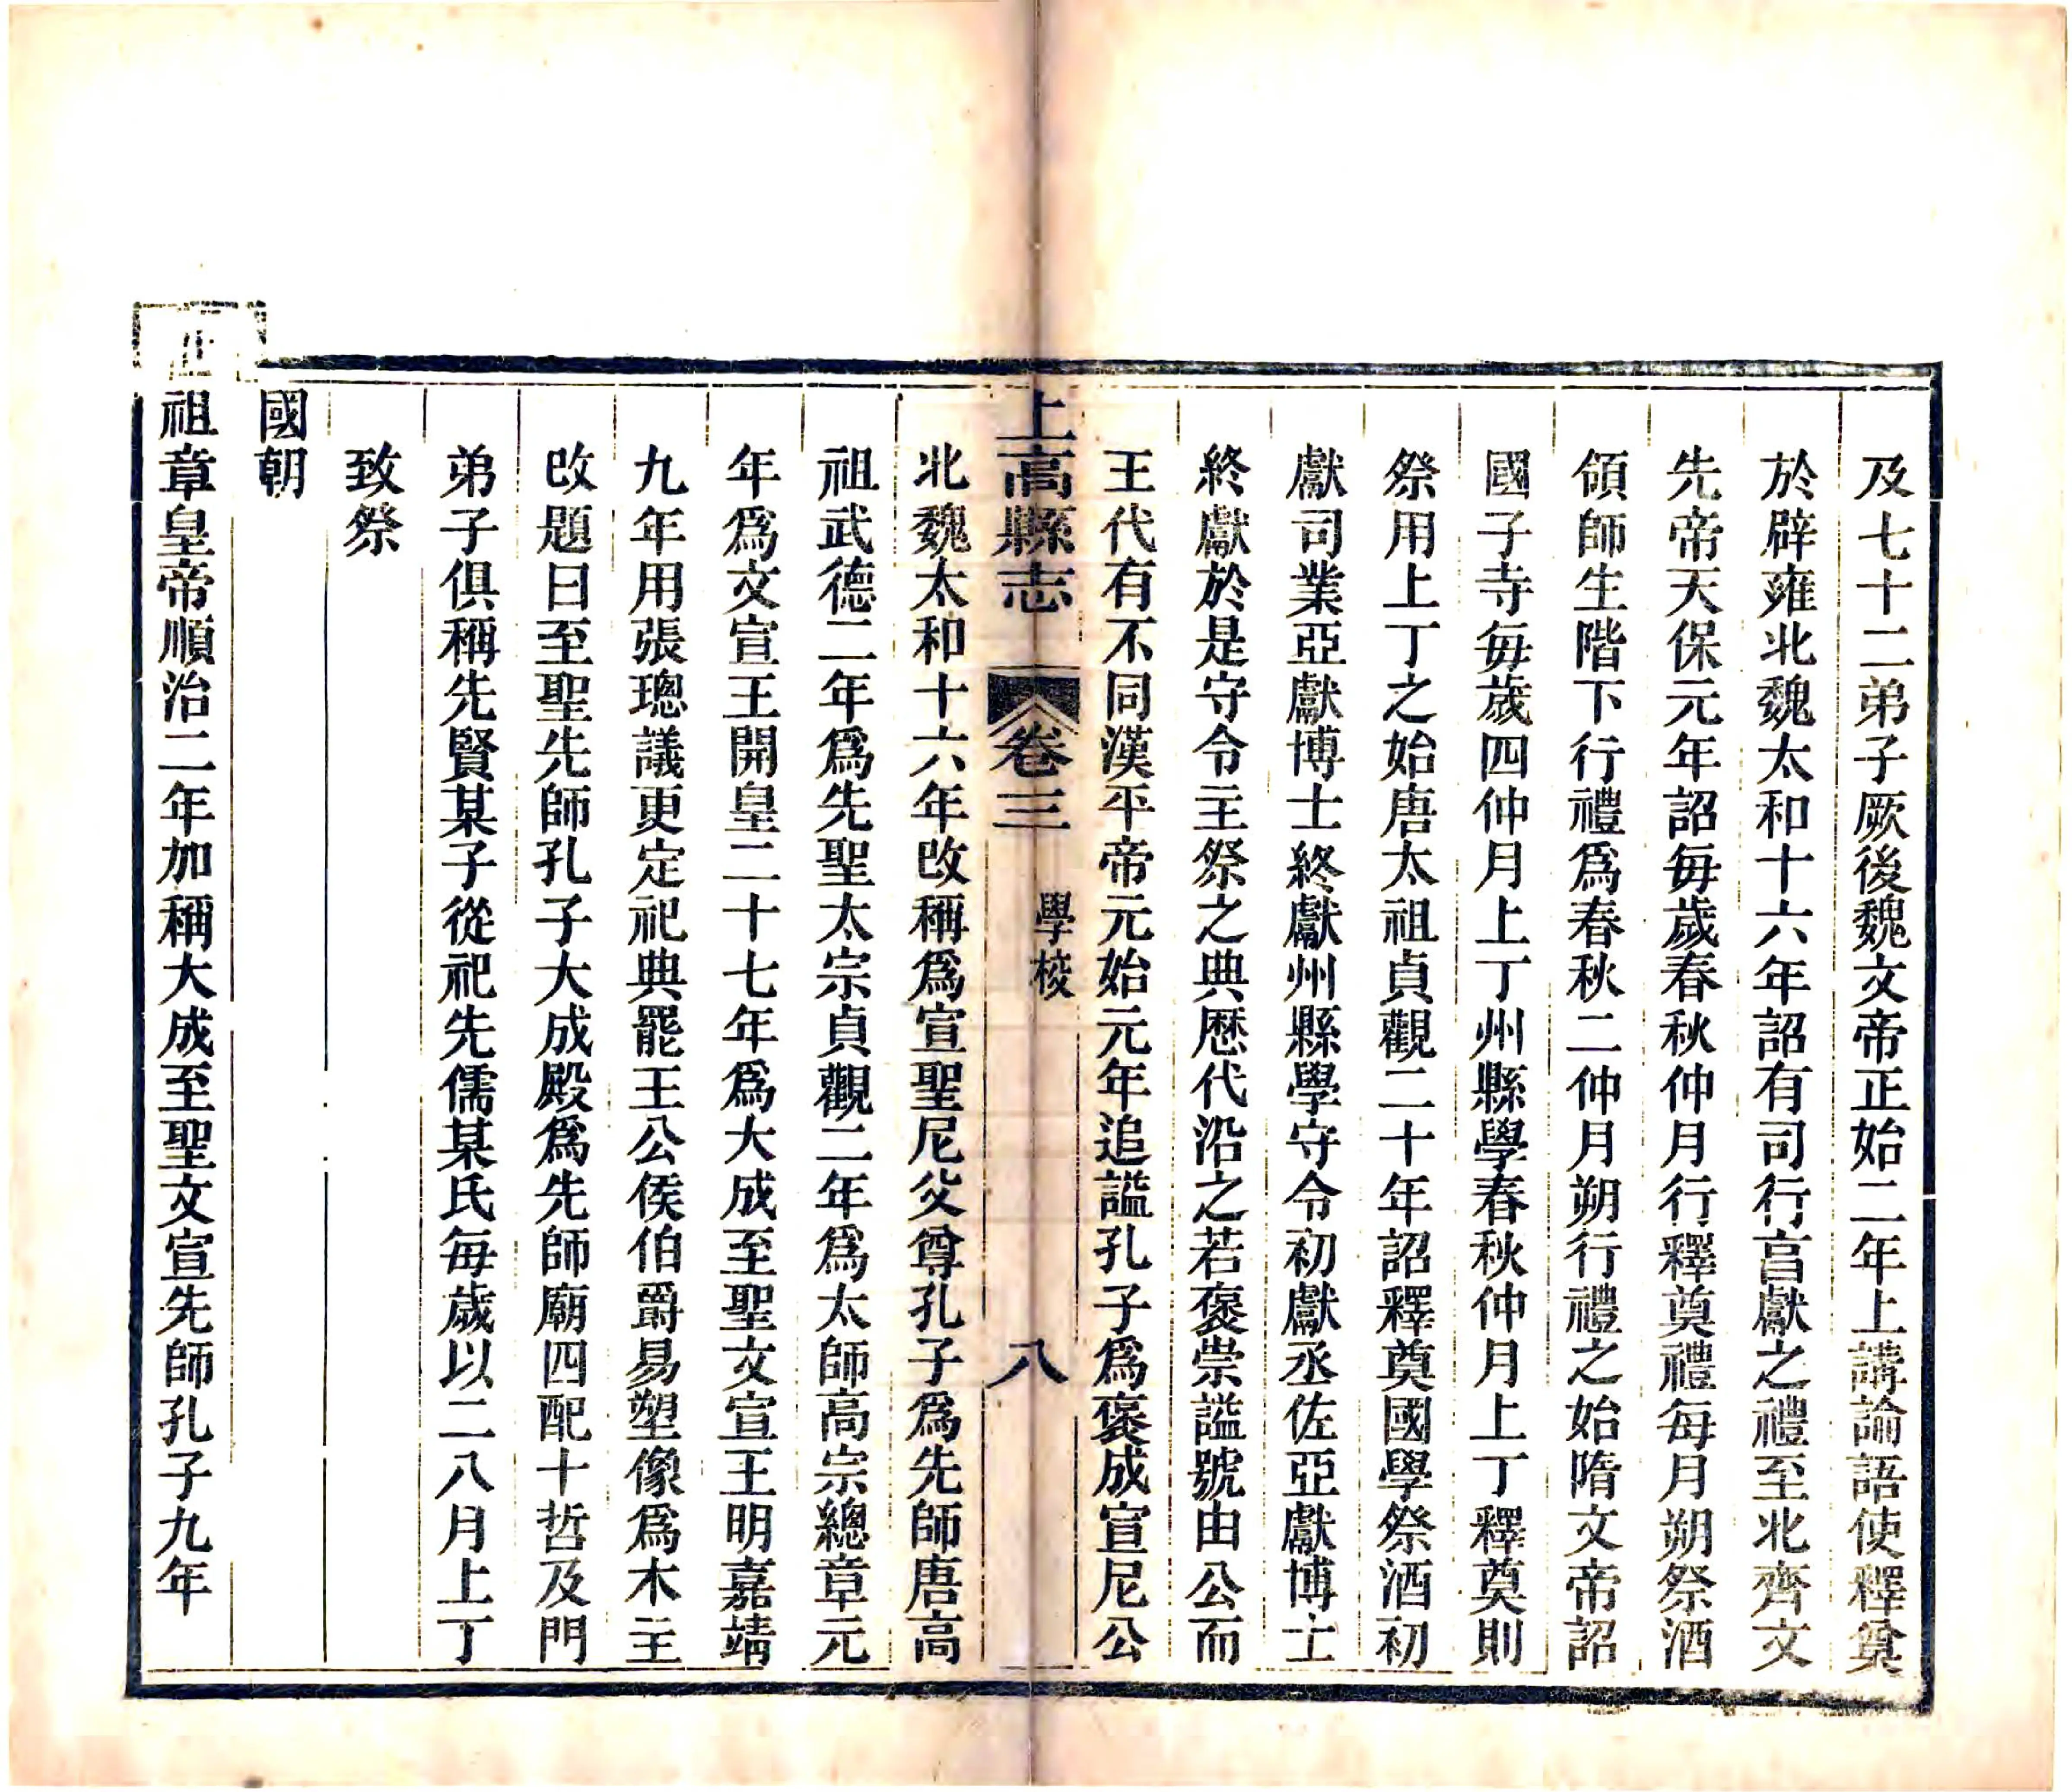 及七十二弟子厥後魏文帝正始二年上講論語使釋奠
於辟雍北魏太和十六年詔有司行亯獻之禮至北齊文
先帝天保元年詔每歲春秋仲月行釋奠禮每月朔祭酒
領師生階下行禮爲春秋二仲月朔行禮之始隋文帝詔
國子寺每歲四仲月上丁州縣學春秋仲月上丁釋奠則
祭用上丁之始唐太祖貞觀二十年詔釋奠國學祭酒初
獻司業亞獻博士終獻州縣學守令初獻丞佐亞獻博士
終獻於是守令主祭之典歷代沿之若褒崇謚號由公而
王代有不同漢平帝元始元年追謚孔子爲褒成宣尼公
上高縣志 卷三 學校 八
北魏太和十六年改稱爲宣聖尼父尊孔子爲先師唐高
祖武德二年爲先聖太宗貞觀二年爲太師高宗總章元
年爲文宣王開皇二十七年爲大成至聖文宣王明嘉靖
九年用張璁議更定祀典罷王公侯伯爵易塑像爲木主
改題曰至聖先師孔子大成殿爲先師廟四配十哲及門
弟子俱稱先賢某子從祀先儒某氏每歲以二八月上丁
致祭
國朝
祖章皇帝順治二年加稱大成至聖文宣先師孔子九年